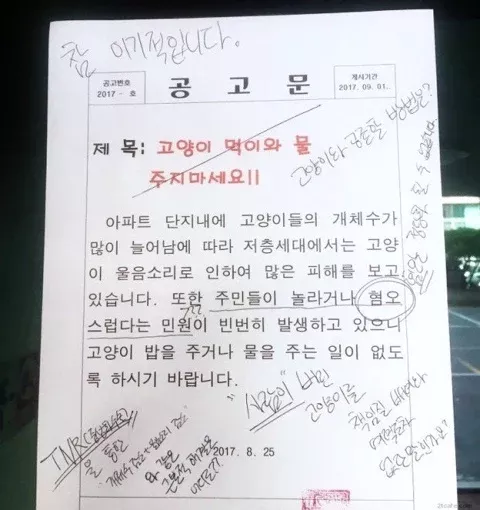 참 이기적입니다.
공고번호
2017 - 호
공 고 문
게시기간
2017. 09. 01.
제 목: 고양이 먹이와 물
주지마세요!!
고양이와 공존할 방법은?
아파트 단지내에 고양이들의 개체수가
많이 늘어남에 따라 저층세대에서는 고양
이 울음소리로 인하여 많은 피해를 보고
있습니다. 또한 주민들이 놀라거나 혐오
스럽다는 민원이 빈번히 발생하고 있으니
고양이 밥을 주거나 물을 주는 일이 없도
록 하시기 바랍니다.
"사람이" 버린
고양이를
책임질
TNR
을 통한
개체수 감소 + 울음소리 감소
와 같은
근본적 해결은
어떨지?
2017. 8. 25